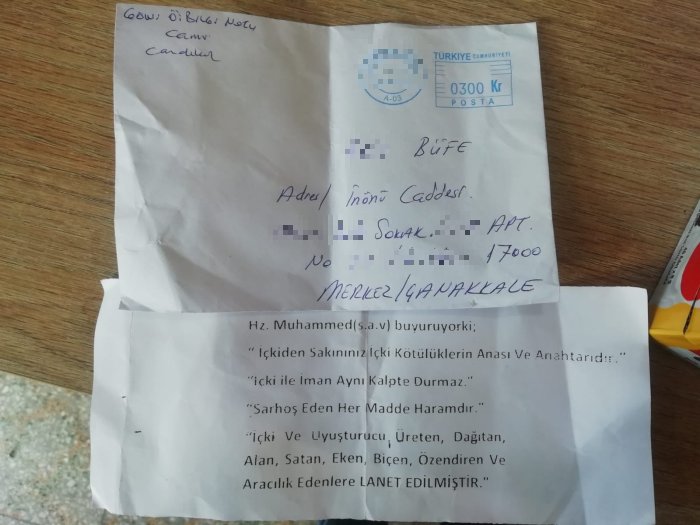 Cami
TÜRKİYE CUMHURİYETİ
A-03
0300 Kr
POSTA
BÜFE
Adres/ İnönü Caddesi.
SOKAK. APT.
No 17000
MERKEZ/ÇANAKKALE
Hz. Muhammed(s.a.v) buyuruyorki;
" İçkiden Sakınınız İçki Kötülüklerin Anası Ve Anahtarıdır."
"İçki ile İman Aynı Kalpte Durmaz."
"Sarhoş Eden Her Madde Haramdır."
"İçki Ve Uyuşturucu Üreten, Dağıtan,
Alan, Satan, Eken, Biçen, Özendiren Ve
Aracılık Edenlere LANET EDİLMİŞTİR."